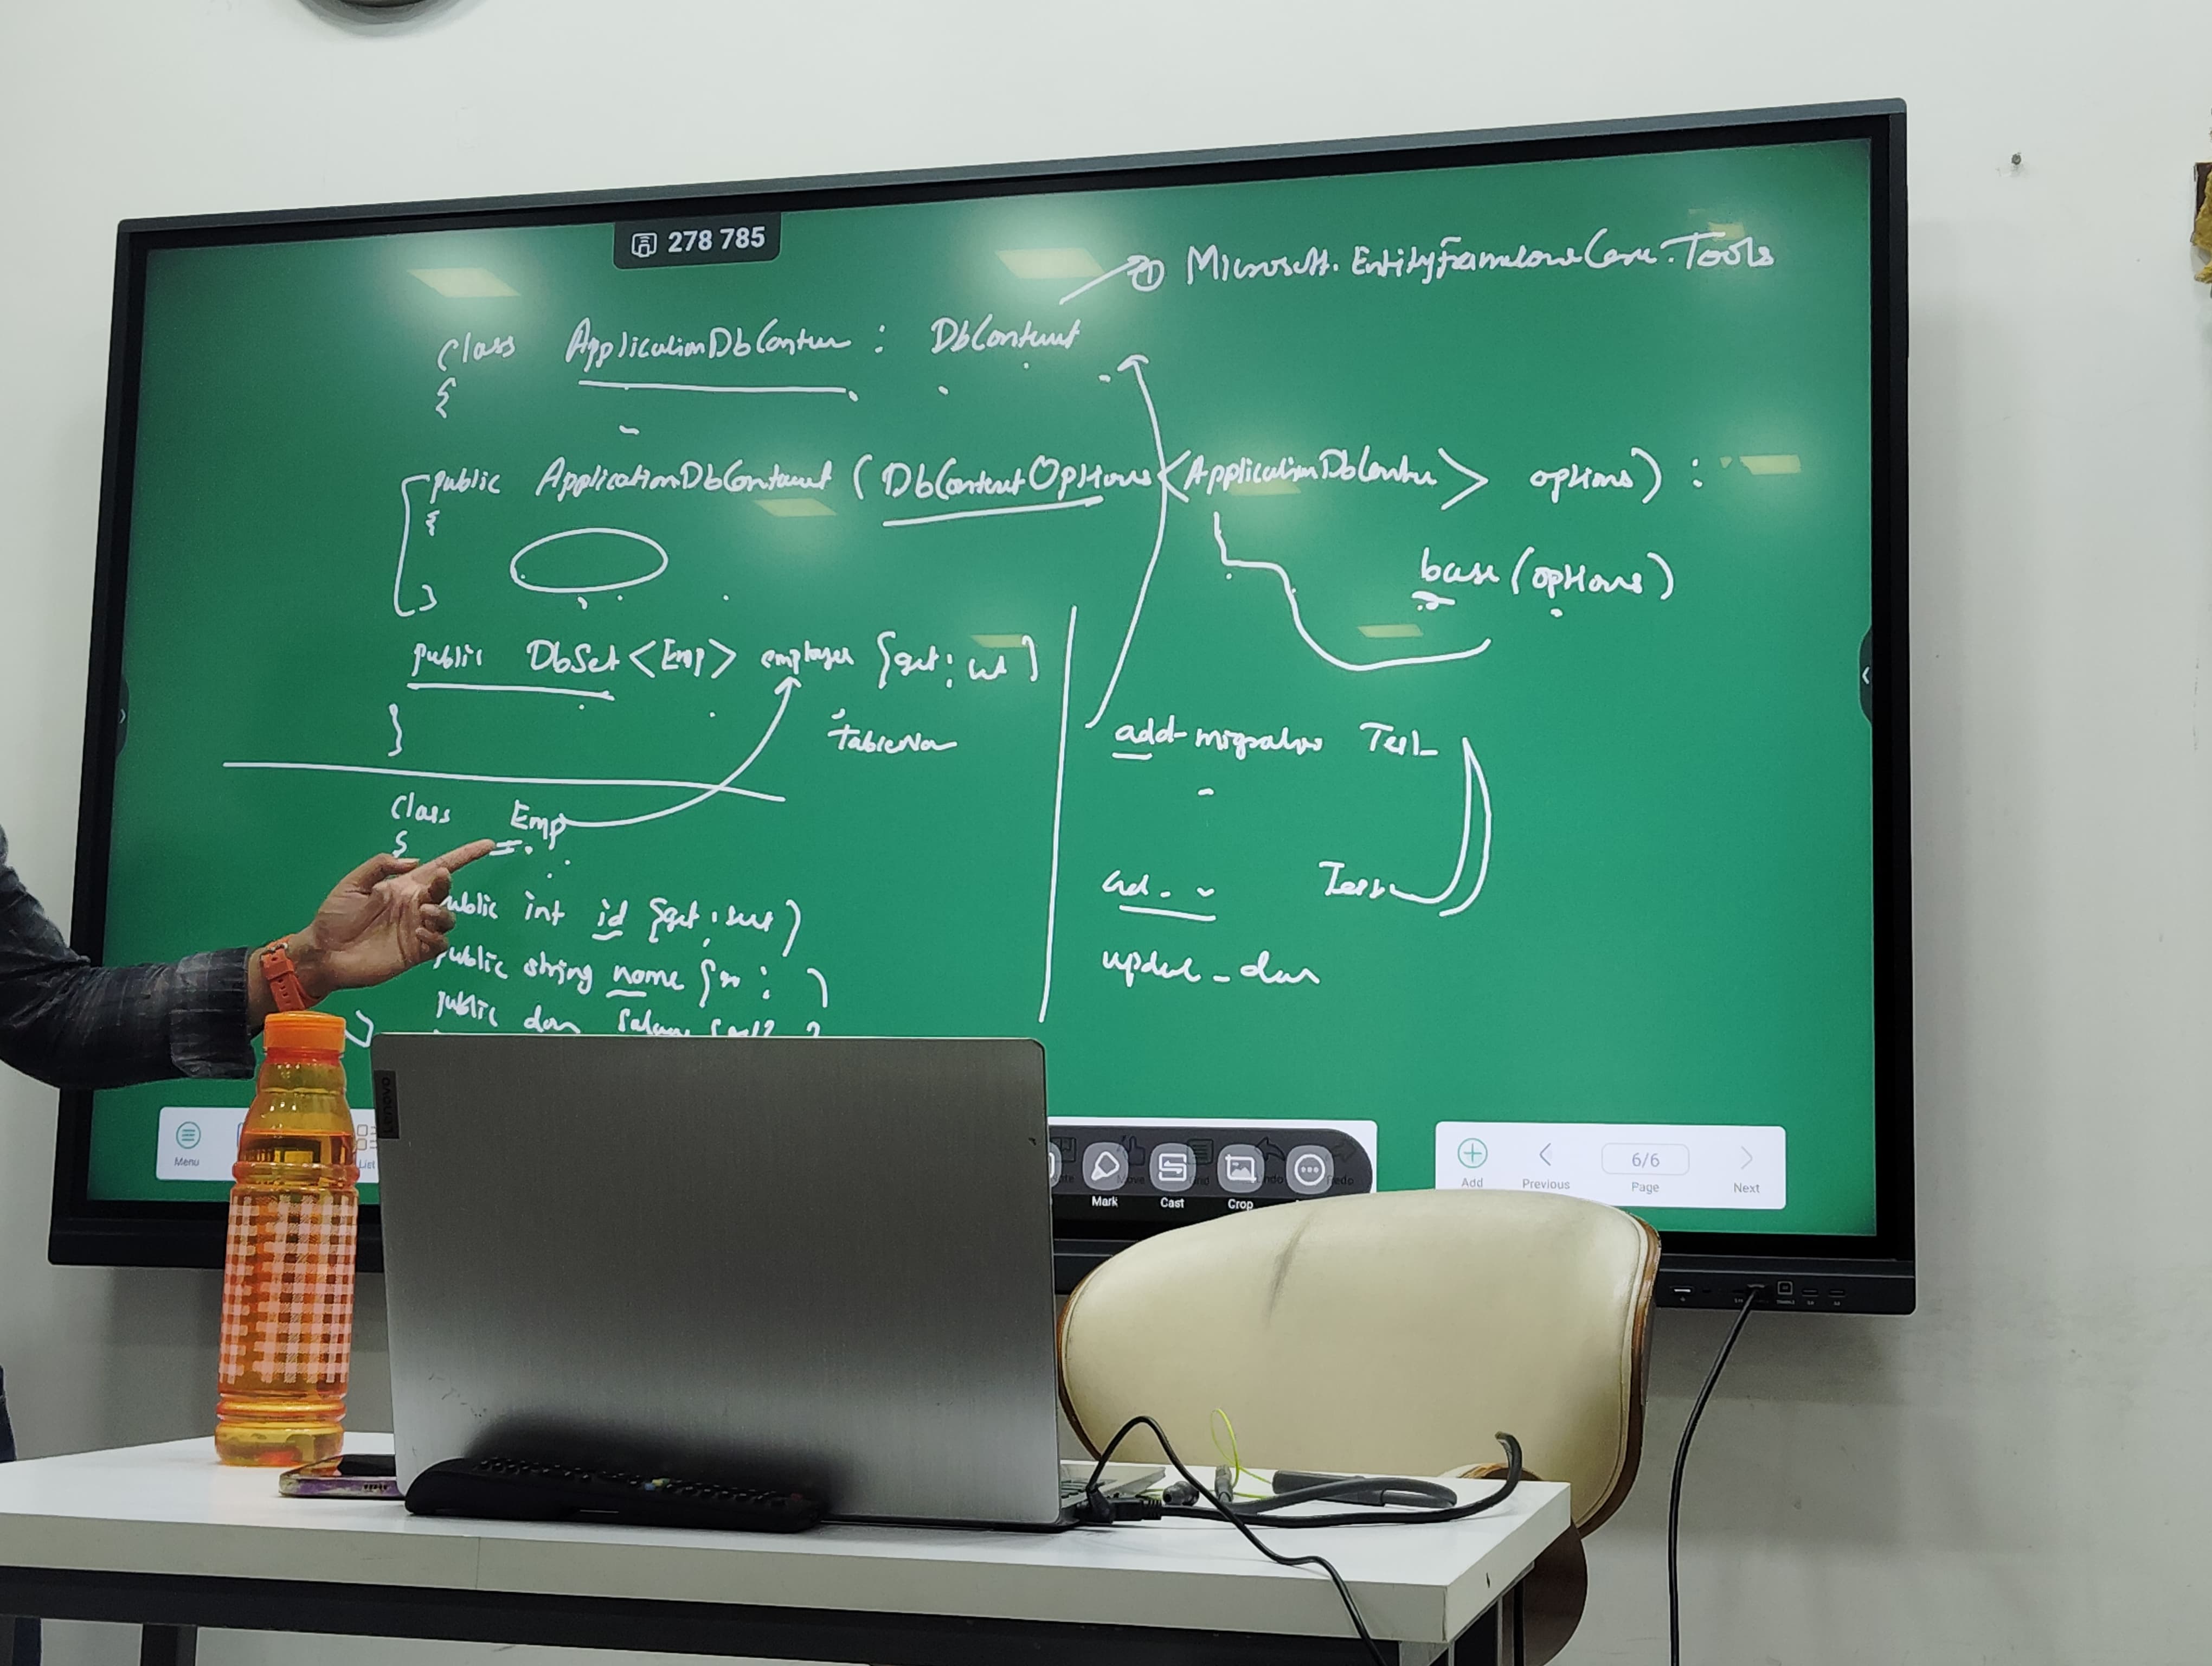 278 785
① Microsoft.EntityFrameworkCore.Tools
Class ApplicationDbContex : DbContext
{
public ApplicationDbContext (DbContextOptions<ApplicationDbContex> options) :
{
base(options)
}
public DbSet<Emp> employee {get; set }
tableNa
}
Class Emp
{
public int id {get; set }
public string name { }
public Salary
}
add-migration Test
update-
Lenovo
Menu
List
Mark
Cast
Crop
Add
Previous
6/6
Page
Next